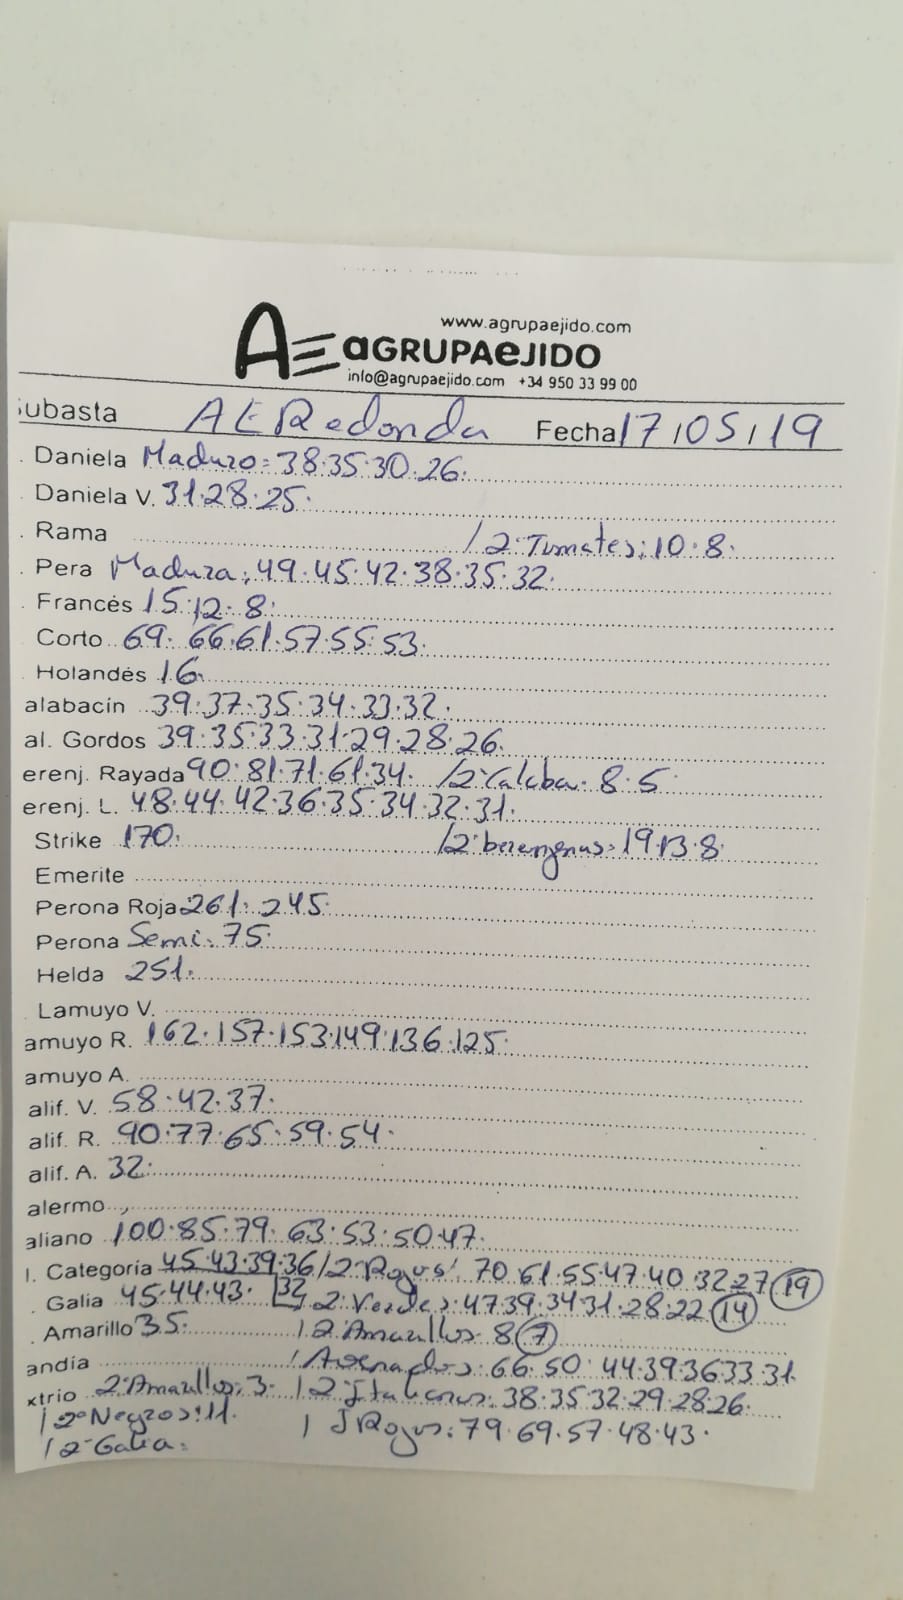 www.agrupaejido.com
AE aGRUPAeJIDO
info@agrupaejido.com +34 950 33 99 00
ubasta AE Redonda Fecha 17/05/19
Daniela Maduro: 38.35.30.26.
Daniela V. 31.28.25.
Rama / 2ª Tumates: 10.8.
Pera Madura: 49.45.42.38.35.32.
Francés 15.12.8.
Corto 69.66.61.57.55.53.
Holandés 16.
alabacín 39.37.35.34.33.32.
al. Gordos 39.35.33.31.29.28.26.
erenj. Rayada 90.81.71.61.34. /2ª Calaba. 8.5
erenj. L. 48.44.42.36.35.34.32.31.
Strike 170. /2ª berenjenas: 19.13.8
Emerite
Perona Roja 261. 245.
Perona Semi: 75.
Helda 251.
Lamuyo V.
amuyo R. 162.157.153.149.136.125.
amuyo A.
alif. V. 58.42.37.
alif. R. 90.77.65.59.54.
alif. A. 32.
alermo
aliano 100.85.79.63.53.50.47.
l. Categoría 45.43.39.36 /2ª Rojos: 70.61.55.47.40.32.27 19
Galia 45.44.43. 32 2ª Verdes: 47.39.34.31.28.22 14
Amarillo 35. / 2 Amarillos: 8 7
andía / Asenados: 66.50.44.39.36.33.31.
xtrio 2ª Amarillos: 3. / 2 Italianos: 38.35.32.29.28.26.
/ 2º Negros: 11. / J Rojos: 79.69.57.48.43.
/ 2ª Galia: